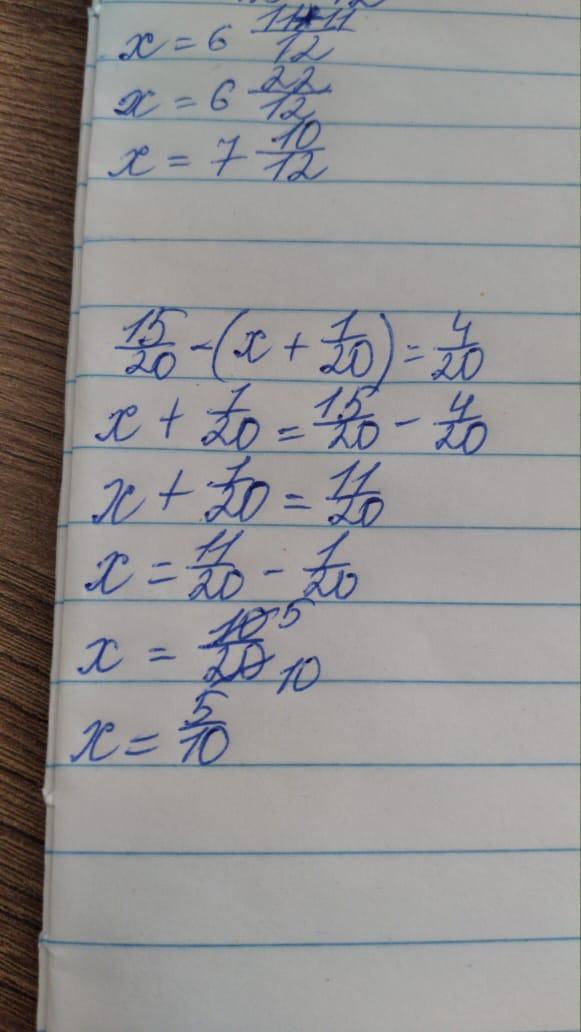 x = 6 11+11/12
x = 6 22/12
x = 7 10/12
15/20 - (x + 1/20) = 4/20
x + 1/20 = 15/20 - 4/20
x + 1/20 = 11/20
x = 11/20 - 1/20
x = 10/20 5/10
x = 5/10